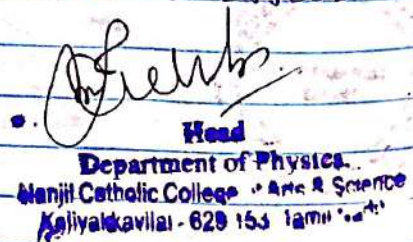 Head
Department of Physics.
Nanjil Catholic College Arts & Science
Kaliyakkavilai - 629 153